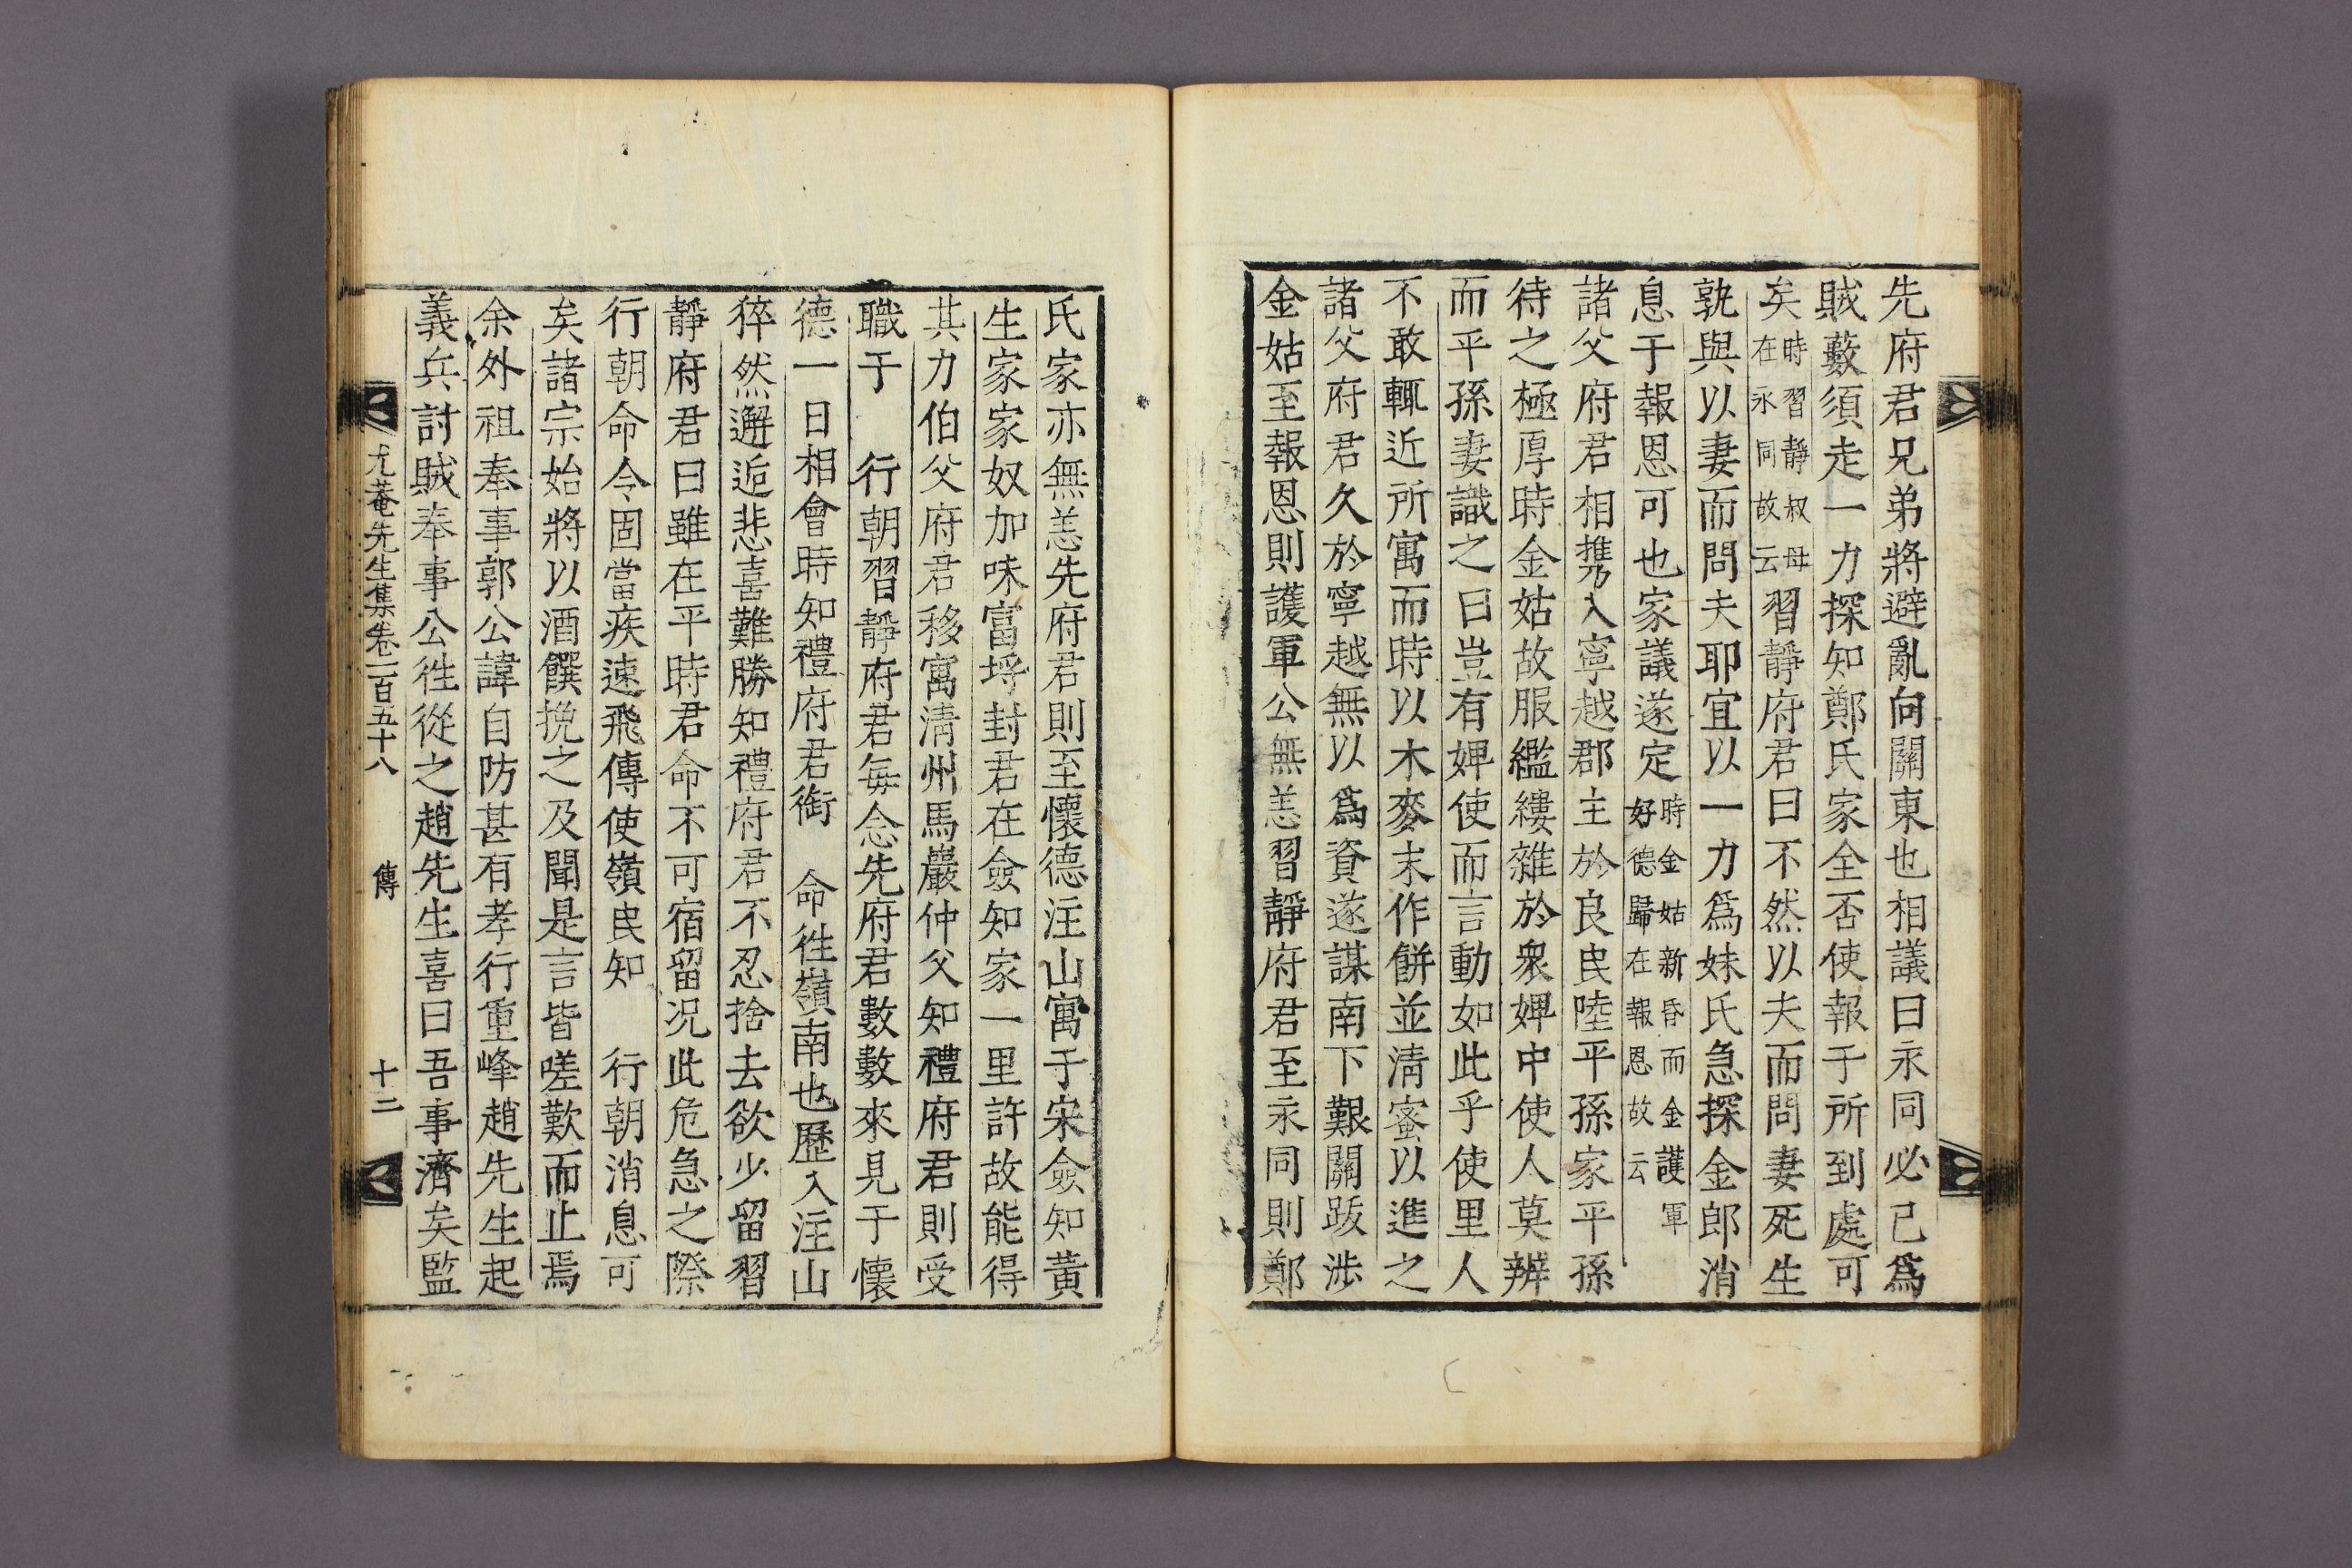 先府君兄弟將避亂向關東也相議曰永同必已爲
賊藪須走一力探知鄭氏家全否使報于所到處可
矣時習靜叔母在永同故云習靜府君曰不然以夫而問妻死生
孰與以妻而問夫耶宜以一力爲妹氏急探金郎消
息于報恩可也家議遂定時金姑新昏而金護軍好德歸在報恩故云
諸父府君相携入寧越郡主於良民陸平孫家平孫
待之極厚時金姑故服繿縷雜於衆婢中使人莫辨
而平孫妻識之曰豈有婢使而言動如此乎使里人
不敢輒近所寓而時以木麥末作餠並淸蜜以進之
諸父府君久於寧越無以爲資遂謀南下艱關跋涉
金姑至報恩則護軍公無恙習靜府君至永同則鄭
氏家亦無恙先府君則至懷德注山寓于宋僉知黃
生家家奴加味富埓封君在僉知家一里許故能得
其力伯父府君移寓淸州馬巖仲父知禮府君則受
職于　行朝習靜府君每念先府君數數來見于懷
德一日相會時知禮府君銜　命徃嶺南也歷入注山
猝然邂逅悲喜難勝知禮府君不忍捨去欲少留習
靜府君曰雖在平時君命不可宿留况此危急之際
行朝命令固當疾速飛傳使嶺民知　行朝消息可
矣諸宗始將以酒饌挽之及聞是言皆嗟歎而止焉
余外祖奉事郭公諱自防甚有孝行重峰趙先生起
義兵討賊奉事公徃從之趙先生喜曰吾事濟矣監
尤菴先生集卷一百五十八　傳　十二